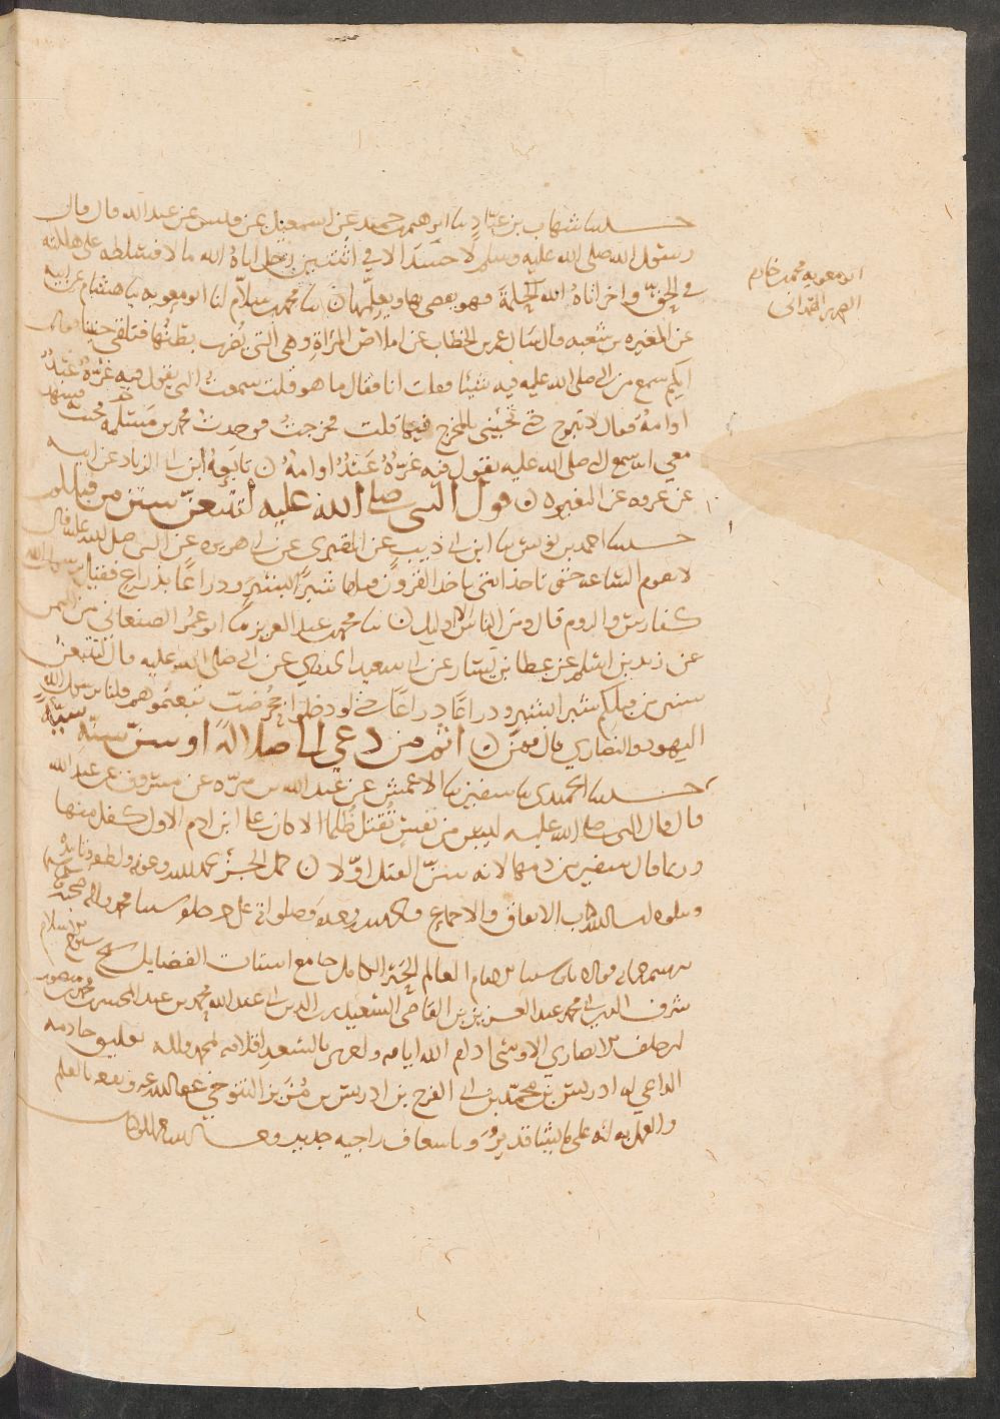 حدثنا شهاب بن عباد ثنا ابرهيم بن حميد عن اسمعيل عن قيس عن عبد الله قال قال
رسول الله صلى الله عليه وسلم لا حسد الا في اثنتين رجل اتاه الله مالا فسلطه على هلكته
في الحق واخر اتاه الله الحكمة فهو يقضي بها ويعلمها ن ثنا محمد بن سلام انا ابو معويه ثنا هشام عن ابيه
عن المغيره بن شعبه قال سال عمر بن الخطاب عن املاص المراة وهي التي يضرب بطنها فتلقي جنينا فقال
ايكم سمع من النبي صلى الله عليه فيه شيئا فقلت انا فقال ما هو قلت سمعت النبي يقول فيه غرة عبد
او امة فقال لا تبرح حتى تجيئني بالمخرج فيما قلت فخرجت فوجدت محمد بن مسلمه فجئت به فشهد
معي انه سمع النبي صلى الله عليه يقول فيه غرة عبد او امة ن تابعه ابن ابي الزناد عن ابيه
عن عروه عن المغيره ن قول النبي صلى الله عليه لتتبعن سنن من قبلكم
حدثنا احمد بن يونس ثنا ابن ابي ذيب عن المقبري عن ابي هريره عن النبي صلى الله عليه قال
لا تقوم الساعه حتى تاخذ امتي باخذ القرون قبلها شبرا بشبر وذراعا بذراع فقيل يرسول الله
كفارس والروم قال ومن الناس الا اوليك ن ثنا محمد بن عبد العزيز ثنا ابو عمر الصنعاني من اليمن
عن زيد بن اسلم عن عطا بن يسار عن ابي سعيد الخدري عن النبي صلى الله عليه قال لتتبعن
سنن من قبلكم شبرا بشبر وذراعا ذراعا حتى لو دخلوا جحر ضب تبعتموهم قلنا يرسول الله
اليهود والنصاري قال فمن ن اثم من دعي الى ضلالة او سن سنة سيية
حدثنا الحميدي ثنا سفين ثنا الاعمش عن عبد الله بن مره عن مسروق عن عبد الله
قال قال النبي صلى الله عليه ليس من نفس تقتل ظلما الا كان على ابن ادم الاول كفل منها
وربما قال سفين من دمها لانه سن القتل اولا ن كمل الجز بحمد الله وعونه ولطفه وتاييده
ويتلوه ان شا الله باب الاتفاق والاجماع والحمد لله وحده وصلواته على خير خلقه سيدنا محمد واله وصحبه
العالم الحبر الكامل جامع اشتات الفضايل شيخ شيوخ الاسلام
شرف الدين ابي محمد عبد العزيز بن القاضي السعيد زين الدين ابي عبد الله محمد بن عبد المحسن بن محمد بن منصور
بن خلف الانصاري الاوسي ادام الله ايامه بالسعد اقلامه بحمد الله تعليق خادمه
الداعي له ادريس بن محمد بن ابي الفرج بن ادريس بن مزيز التنوخي عفا الله عنه ونفعه بالعلم
والعمل به انه على ما يشا قدير وباسعاف راجيه جدير
ابو معويه محمد بن خازم
الضرير